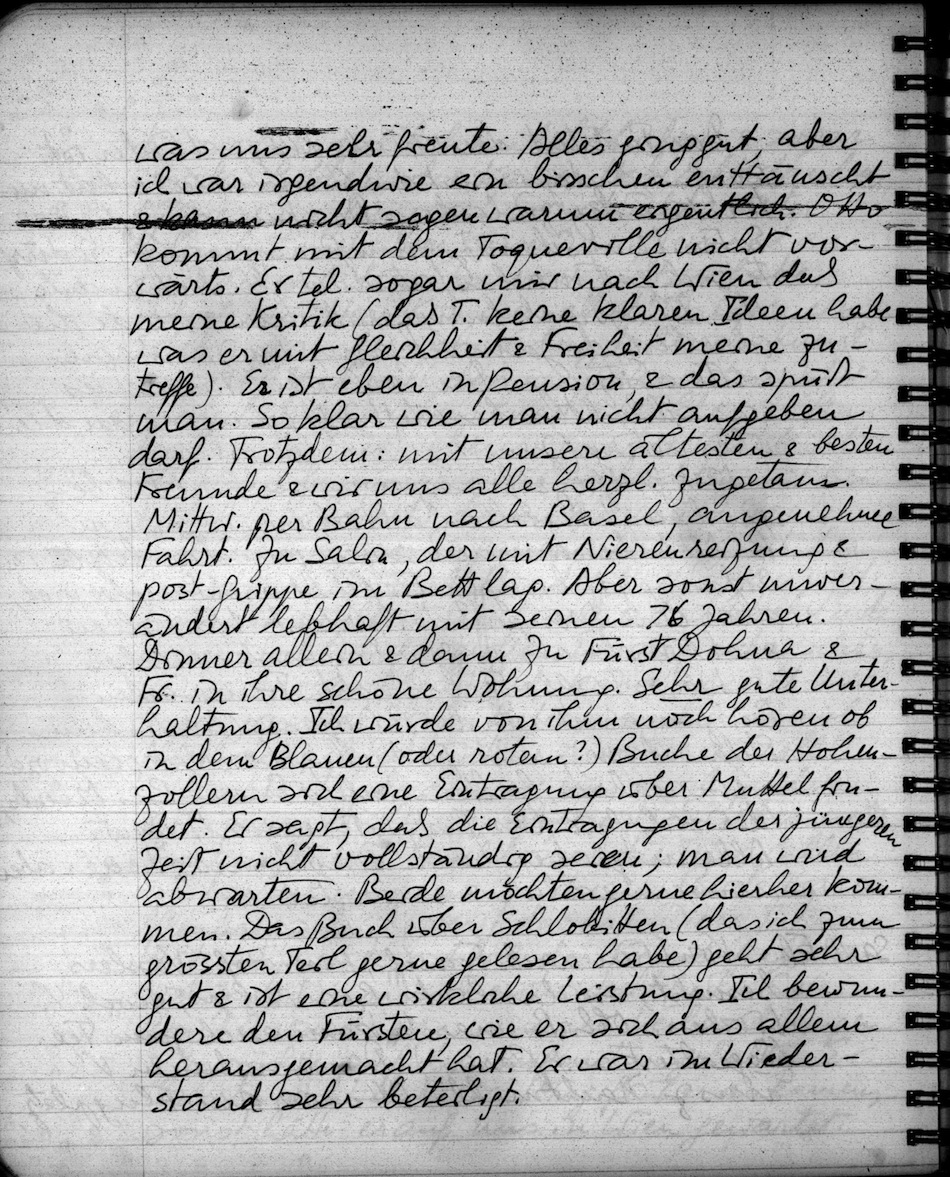 was uns sehr freute. Alles ging gut, aber
ich war irgendwie ein bisschen enttäuscht
& kann nicht sagen warum eigentlich. Otto
kommt mit dem Toqueville nicht vor-
wärts. Er tel. sogar mir nach Wien das
meine Kritik (das T. keine klaren Ideen habe
was er mit Gleichheit & Freiheit meine zu-
treffe). Er ist eben in Pension, & das spürt
man. So klar wie man nicht aufgeben
darf. Trotzdem: mit unsere ältesten & besten
Freunde & wir uns alle herzl. zugetan.
Mittw. per Bahn nach Basel, angenehme
Fahrt. Zu Salin, der mit Nierenreizung &
post-Grippe im Bett lag. Aber sonst unver-
ändert lebhaft mit seinen 76 Jahren.
Dinner allein & dann zu Fürst Dohna &
Fr. in ihre schöne Wohnung. Sehr gute Unter-
haltung. Ich würde von ihm noch hören ob
in dem Blauen (oder roten?) Buche der Hohen-
zollern sich eine Eintragung über Muttel fin-
det. Er sagt, das die Eintragungen der jüngeren
Zeit nicht vollständig seien; man wird
abwarten. Beide möchten gerne hierher kom-
men. Das Buch über Schlobitten (das ich zum
grössten Teil gerne gelesen habe) geht sehr
gut & ist eine wirkliche Leistung. Ich bewun-
dere den Fürsten, wie er sich aus allem
herausgemacht hat. Er war im Wieder-
stand sehr beteiligt.